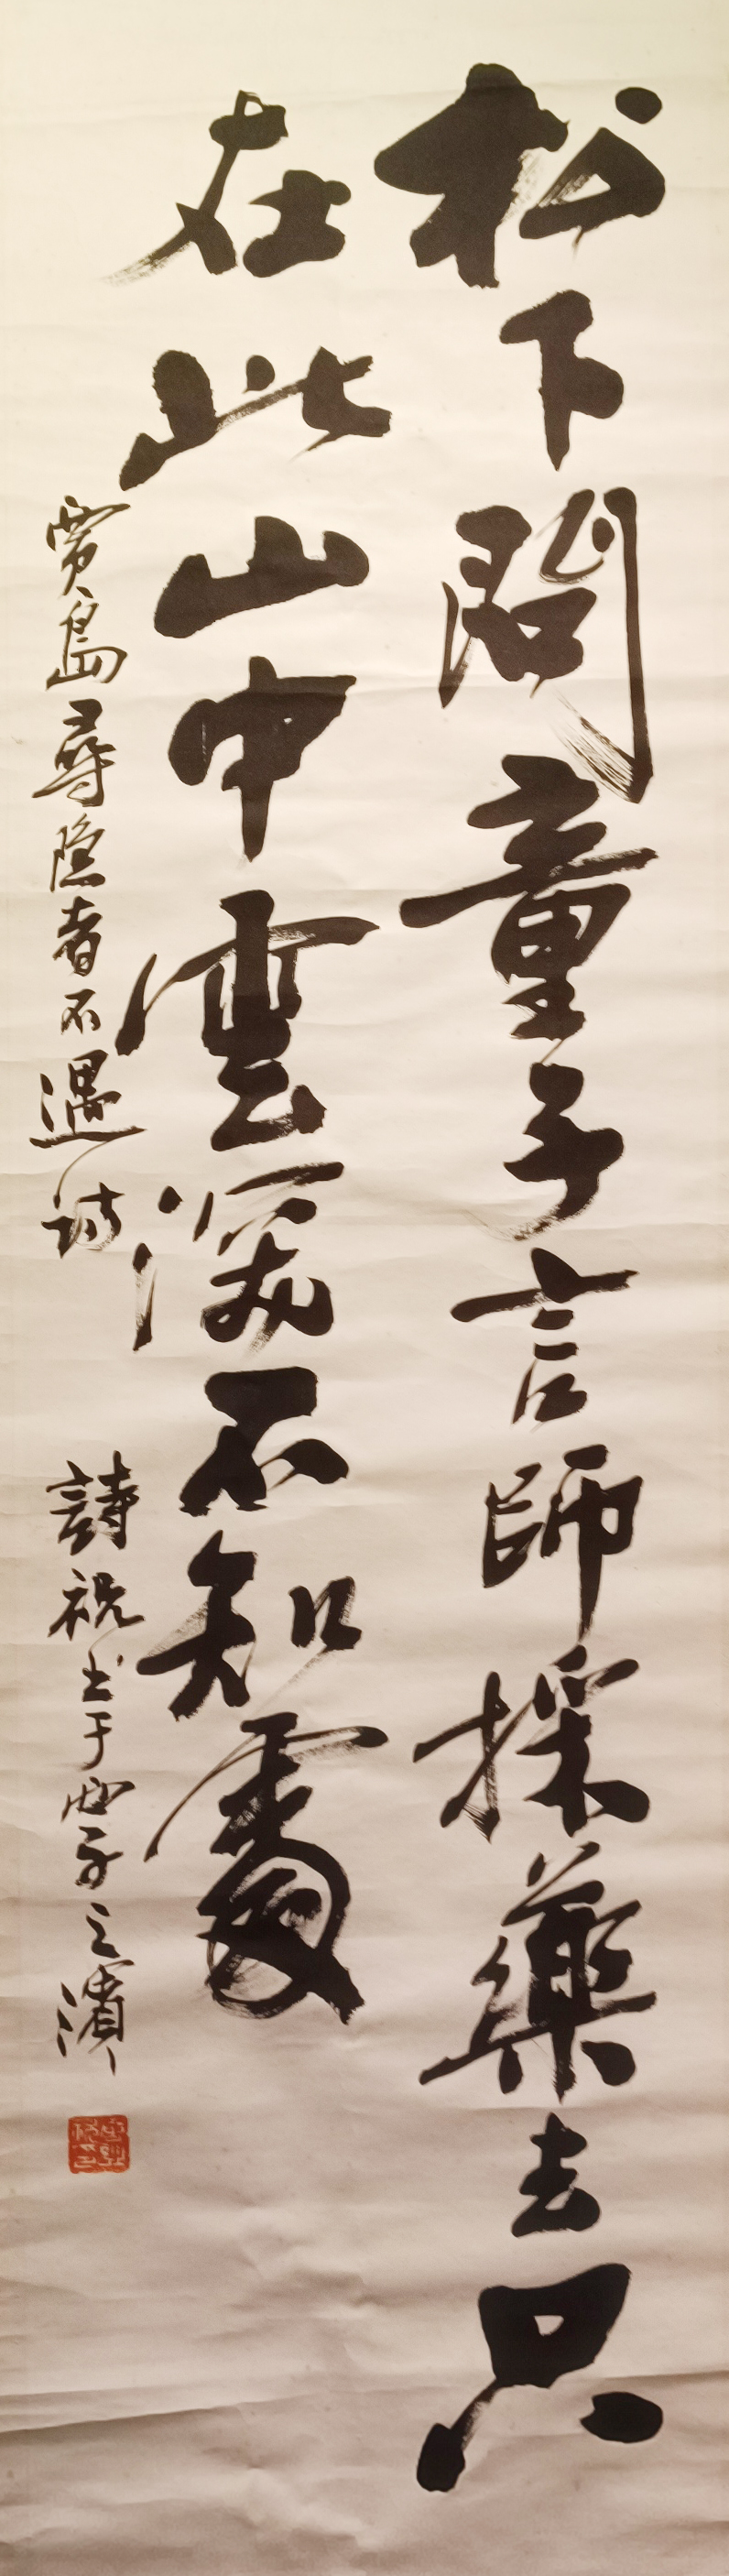 松下問童子言師採藥去只
在此山中雲深不知處
賈島尋隐者不遇詩 詩祝书于西子之濱